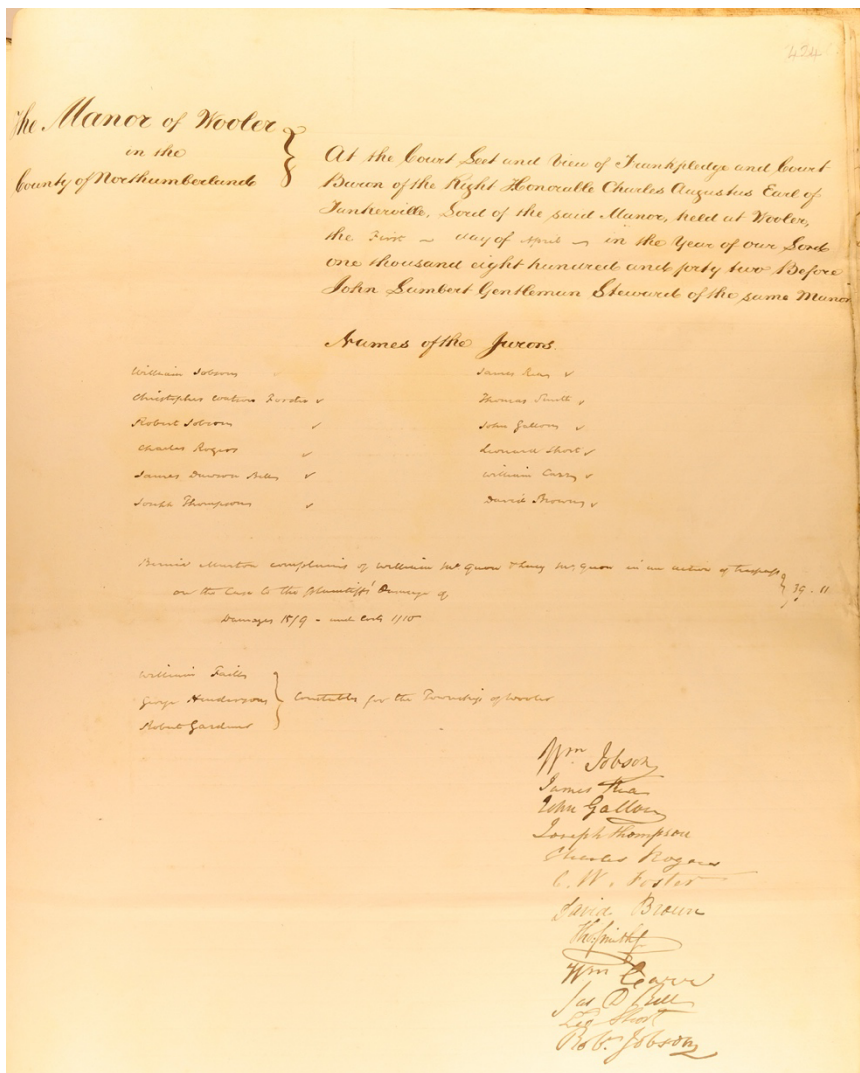 424
The Manor of Wooler
in the
County of Northumberland
At the Court Leet and View of Frankpledge and Court
Baron of the Right Honorable Charles Augustus Earl of
Tankerville, Lord of the said Manor, held at Wooler,
the First day of April in the Year of our Lord
one thousand eight hundred and forty two Before
John Lambert Gentleman Steward of the same Manor
Names of the Jurors
William Jobson
Christopher Foster
Robert Jobson
Charles Rogers
James Dawson Bell
Joseph Thompson
James Rea
Thomas Smith
John Gallon
Leonard Short
William Carr
David Brown
complains of William & in an action of trespass
on the Case to the plaintiffs' Damage of
39 . 11
Damages - and Costs
William
George Henderson
Robert Gardner
Constables for the Township of Wooler
Wm Jobson
James Rea
John Gallon
Joseph Thompson
Charles Rogers
C. W. Foster
David Brown
Tho Smith
Wm Carr
Jas D Bell
Short
Robt. Jobson